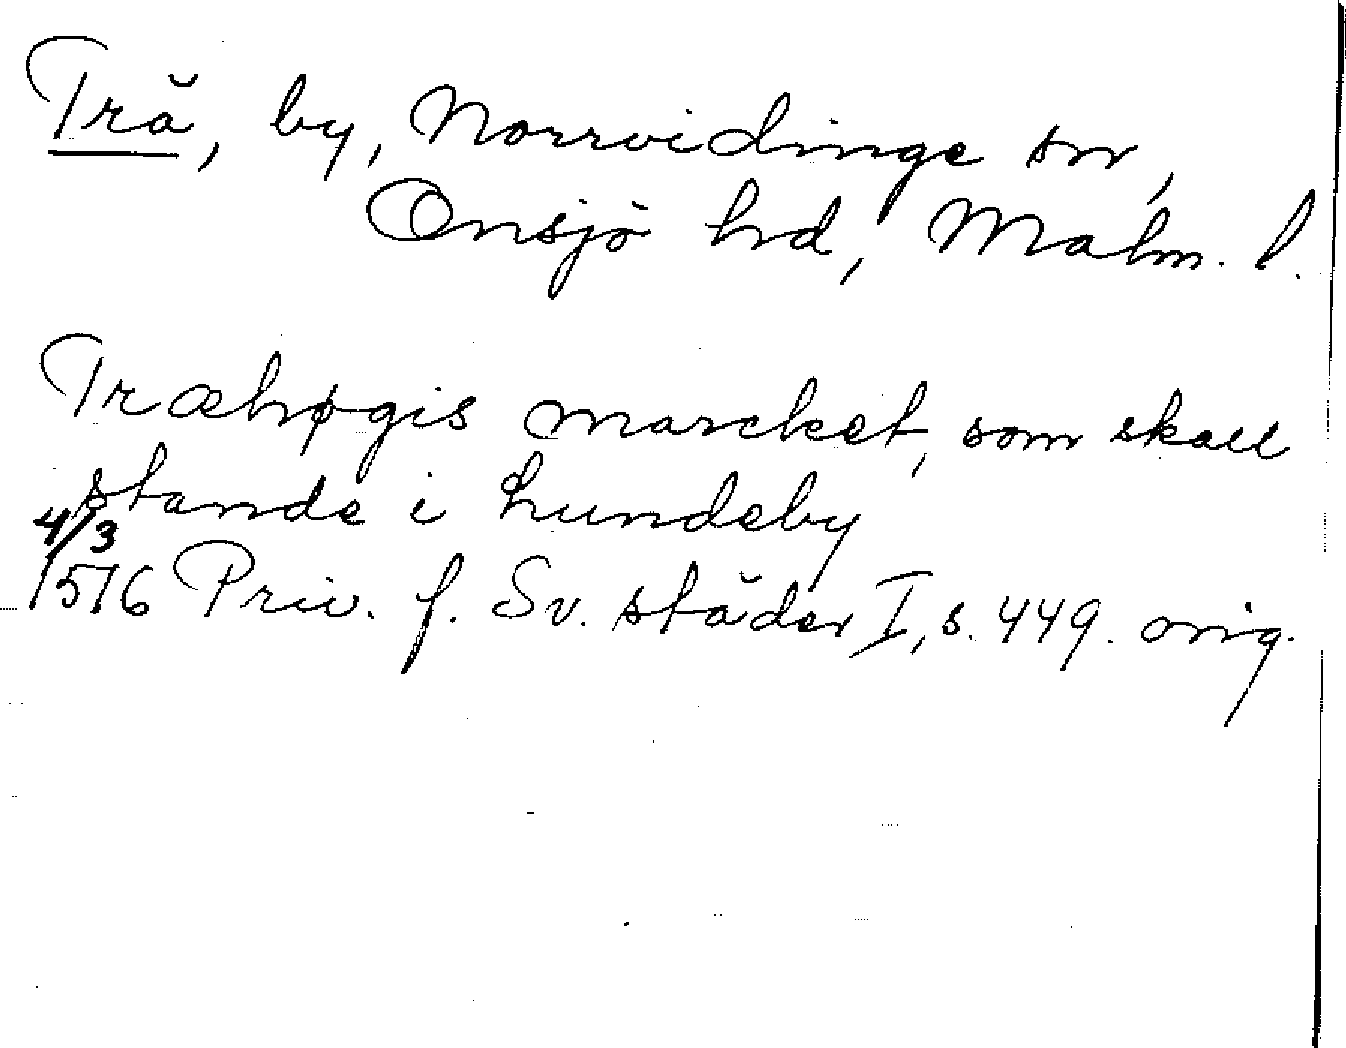 Trä, by, Norrvidinge sn,
Onsjö hd, Malm. l.
Træhøgis marcket, som skall
stande i hundeby
4/3
1516 Priv. f. Sv. städer I, s. 449. orig.